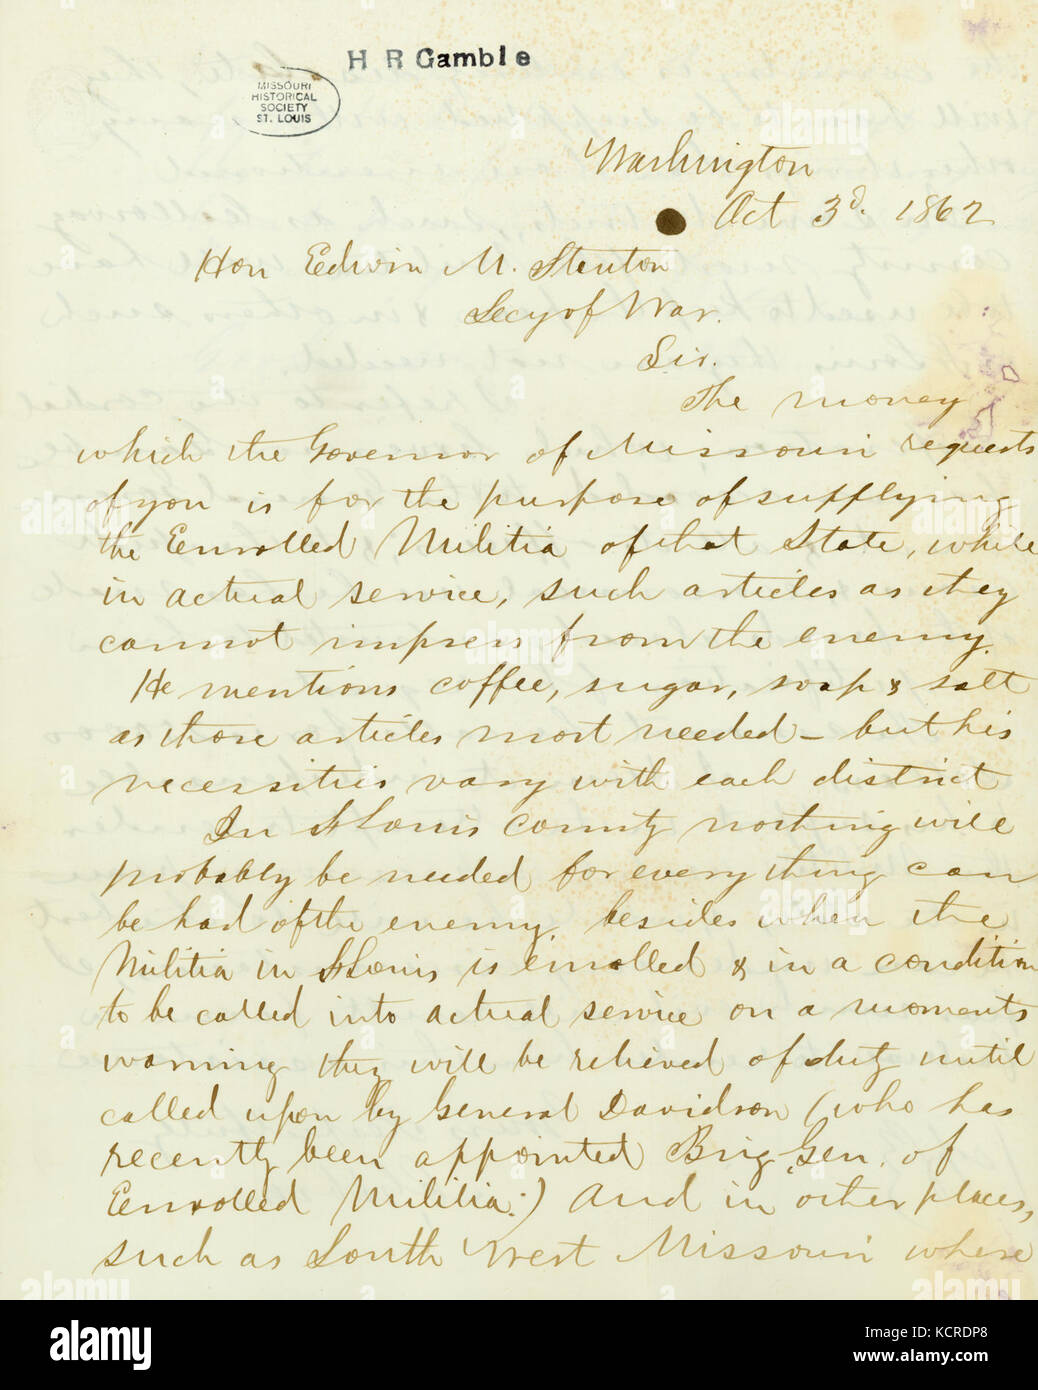 H R Gamble
MISSOURI
HISTORICAL
SOCIETY
ST. LOUIS
Washington
Oct 3d. 1862
Hon Edwin M. Stanton
Secy of War.
Sir.
The money
which the Governor of Missouri requests
of you is for the purpose of supplying
the Enrolled Militia of that State, while
in actual service, such articles as they
cannot impress from the enemy.
He mentions coffee, sugar, soap & salt
as those articles most needed – but his
necessities vary with each district
In St Louis County nothing will
probably be needed for every thing can
be had of the enemy, besides when the
Militia in St Louis is enrolled & in a condition
to be called into actual service on a moments
warning they will be relieved of duty until
called upon by General Davidson (who has
recently been appointed Brig. Gen. of
Enrolled Militia.) And in other places,
such as South West Missouri where
alamy
Image ID: KCRDP8
www.alamy.com